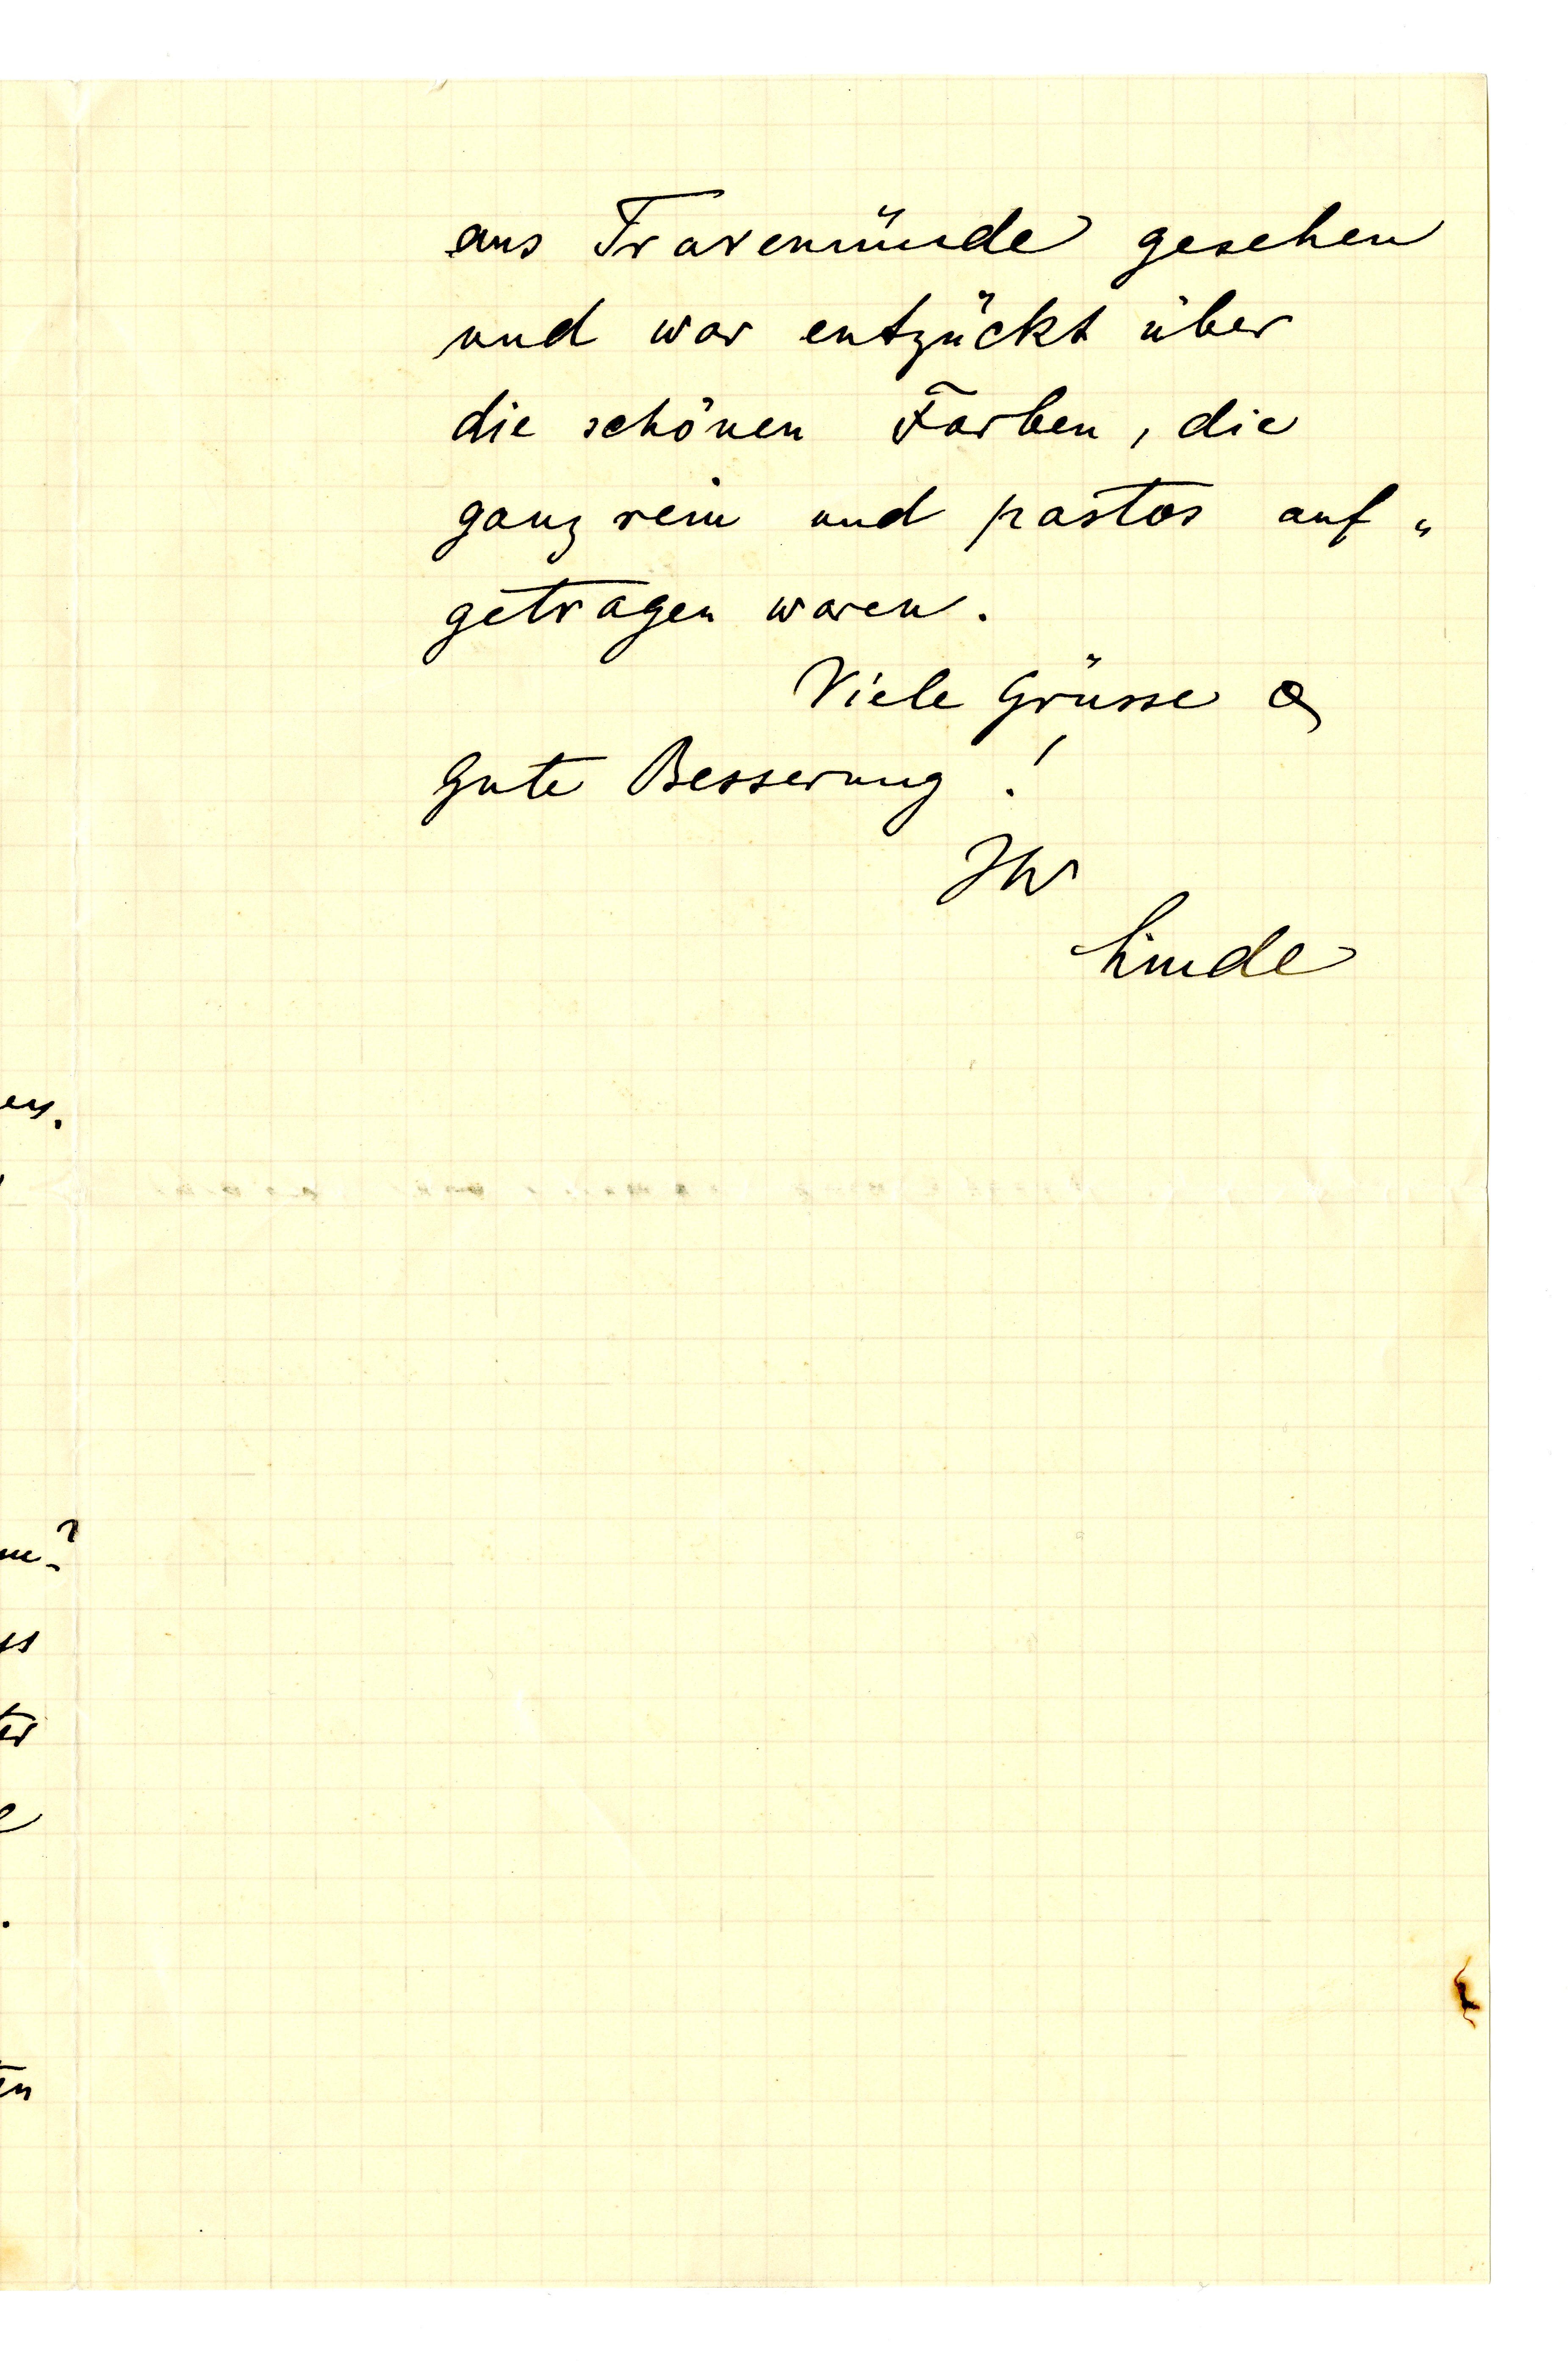 aus Travemünde gesehen
und war entzückt über
die schönen Farben, die
ganz rein und pastos auf-
getragen waren.
Viele Grüsse &
Gute Besserung!
Ihr
Linde